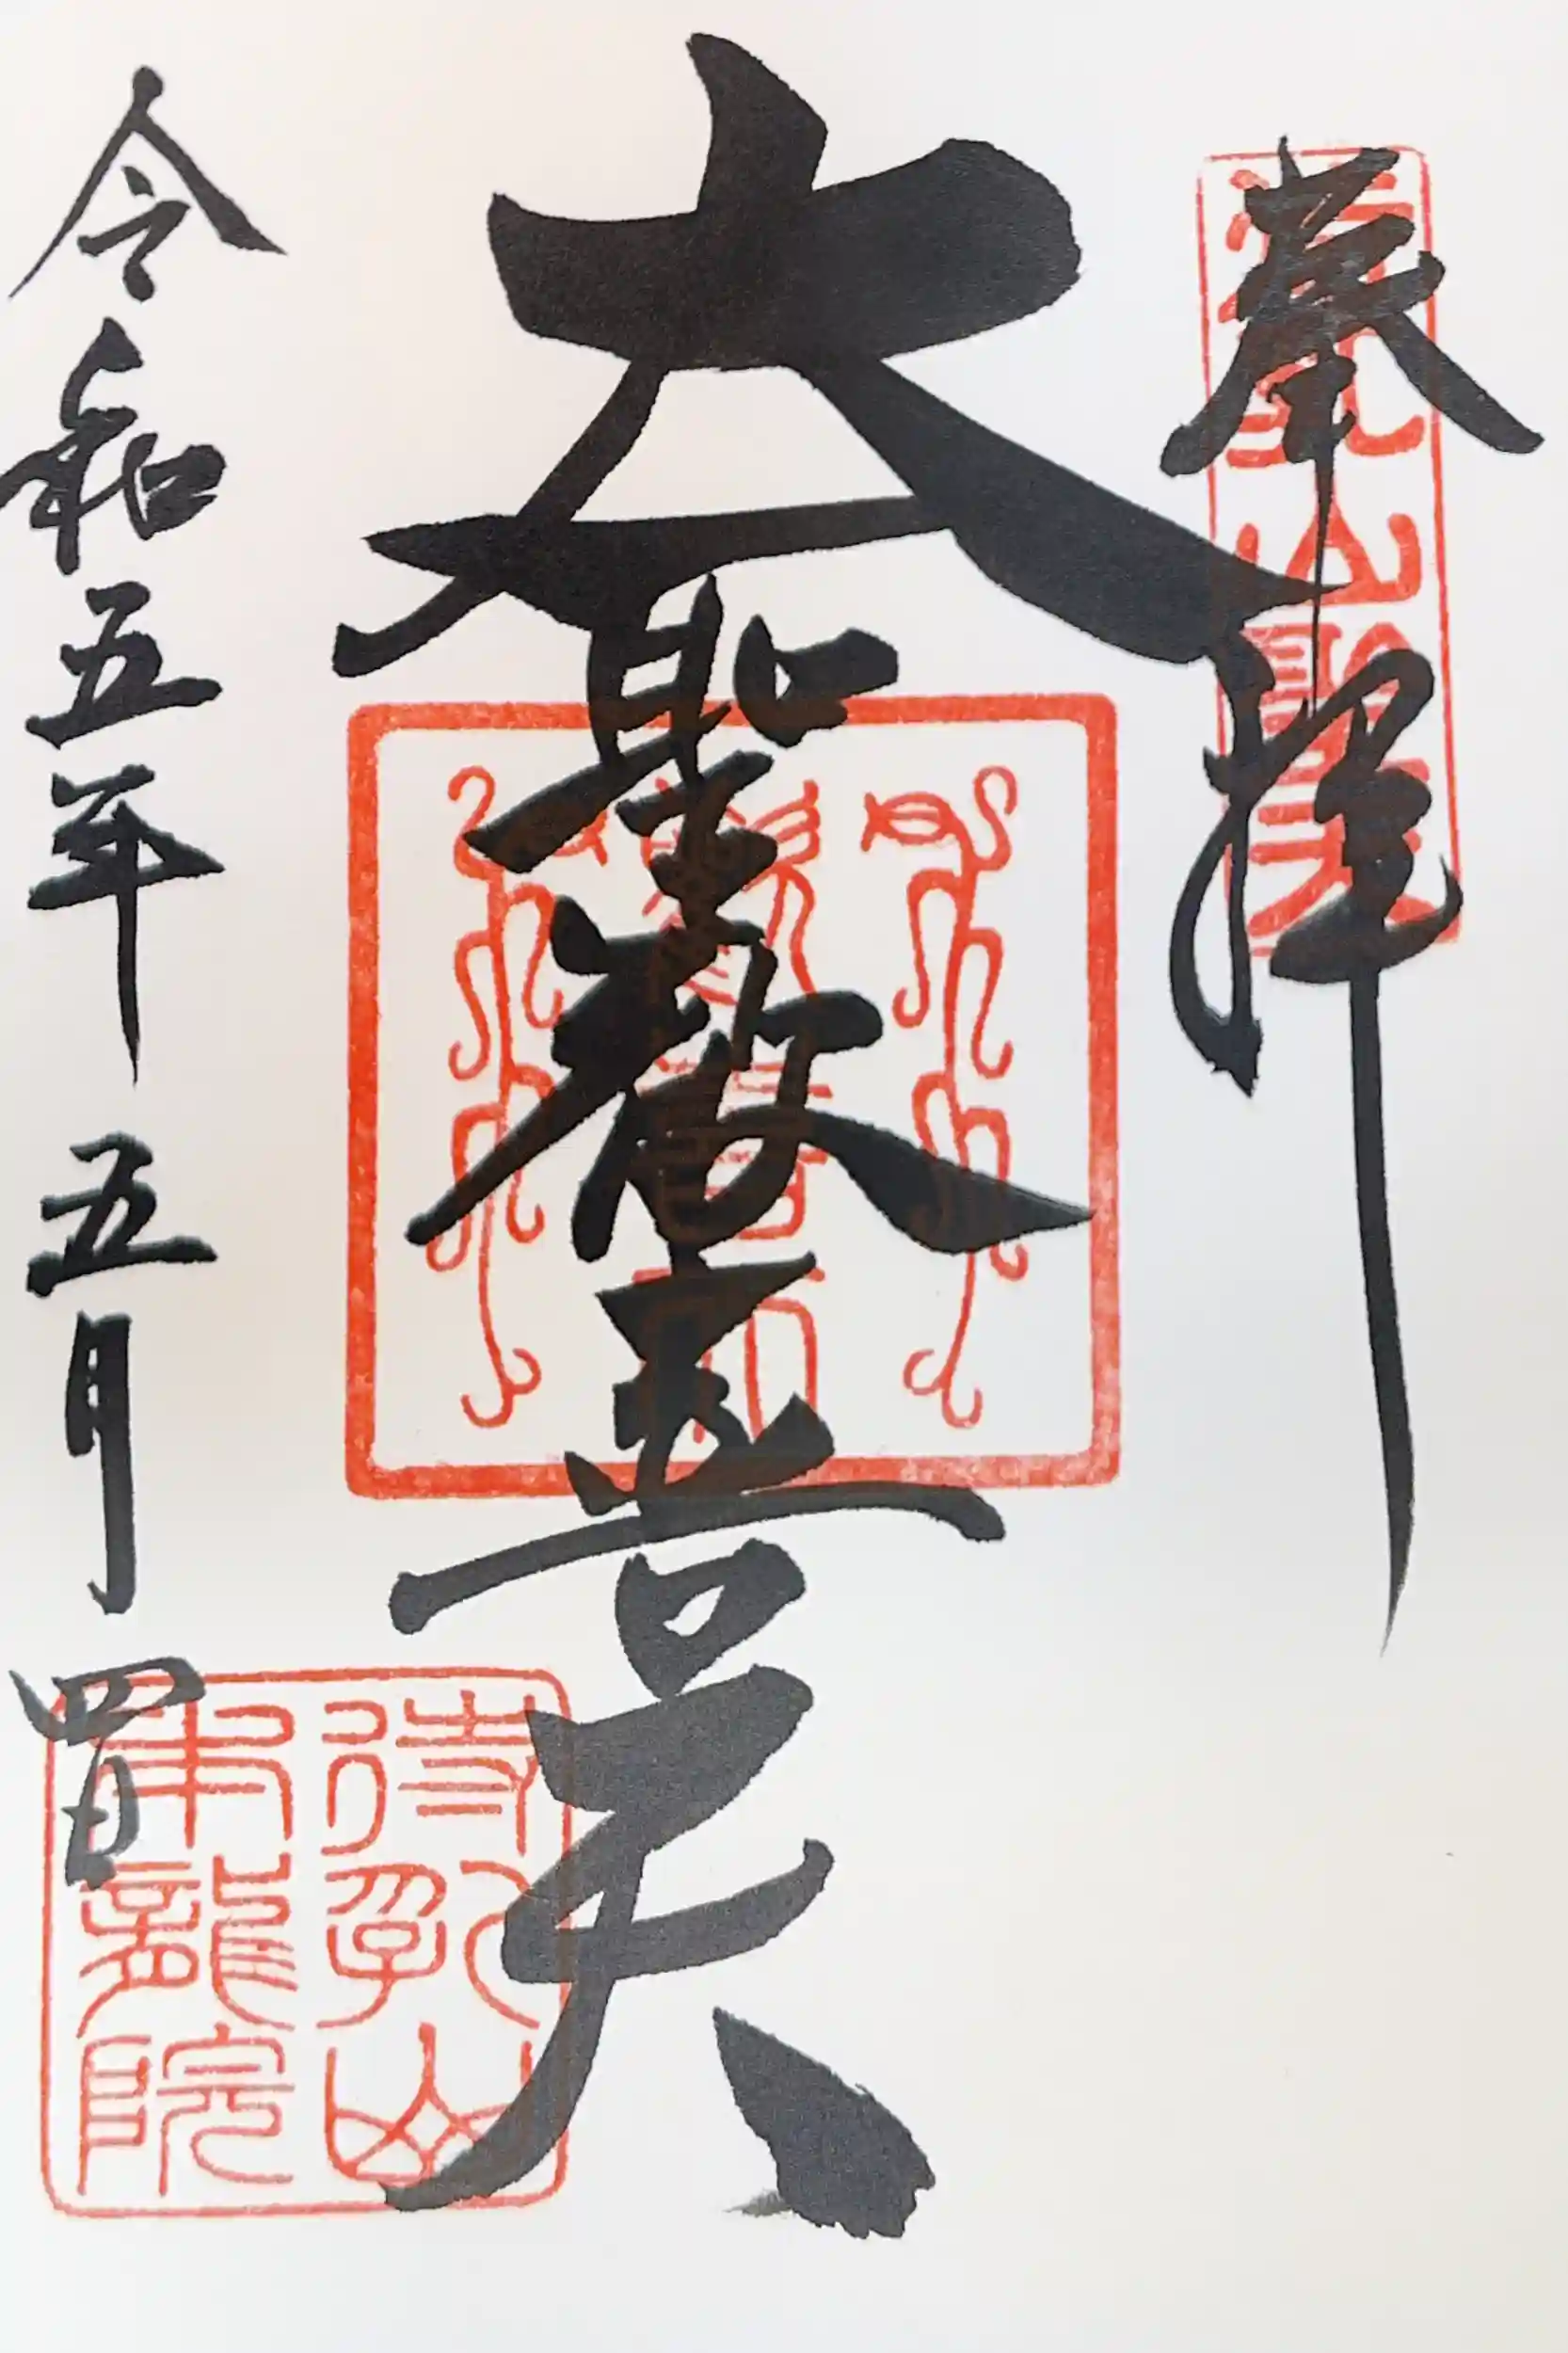 奉拝
待乳山聖天
大聖歓喜天
令和五年 五月 四日
待乳山
本龍院